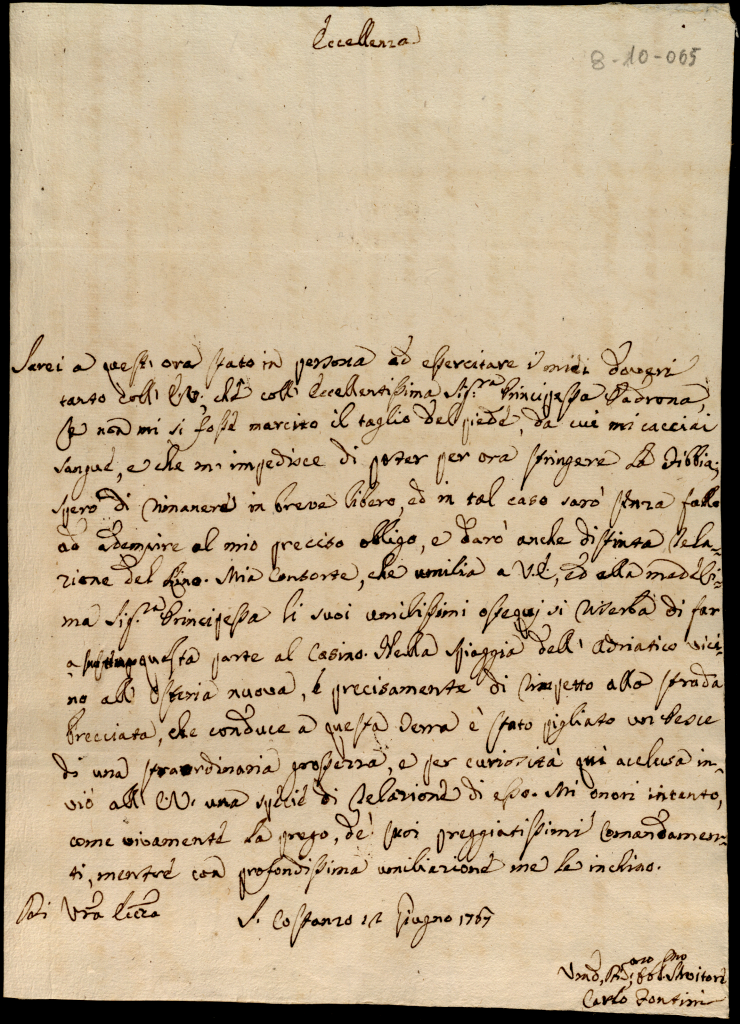 Eccellenza
8-10-065
Sarei a quest'ora stato in persona ad essercitare i miei doveri
tanto coll'E.V., che coll'Eccellentissima Sig.ra Principessa Padrona,
se non mi si fosse marcito il taglio del piede, da cui mi cacciai
sangue, e che m'impedisce di poter per ora stringere la fibbia;
spero di rimanere in breve libero, ed in tal caso sarò senza fallo
ad adempire al mio preciso obligo, e darò anche distinta rela-
zione del Mia Consorte, che umilia a V.E., ed alla medesi-
ma Sig.ra Principessa li suoi umilissimi ossequj si riserba di far
questa parte al Casino. Nella spiaggia dell'Adriatico vici-
no all'Osteria nuova, e precisamente di rimpetto alla strada
brecciata, che conduce a questa Terra è stato pigliato un Pesce
di una straordinaria grossezza, e per curiosità qui acclusa in-
vio all'E.V. una specie di relazione di esso. Mi onori intanto,
come vivamente la prego, de' suoi preggiatissimi comandamen-
ti, mentre con profondissima umiliazione me le inchino.
Di Vra Eccza
S. Costanzo 12 Giugno 1767
Servitore
Carlo Fontini